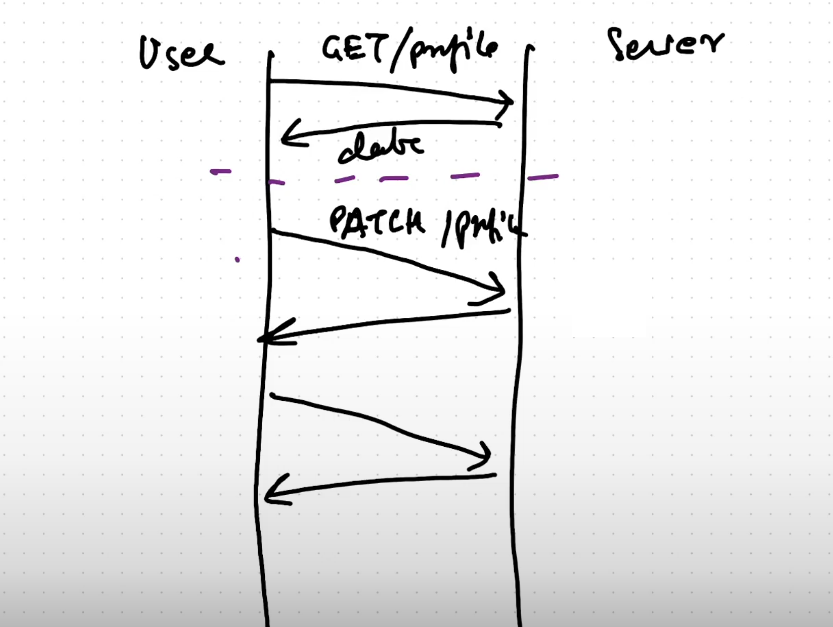 User GET/profile Server
data
PATCH /profile